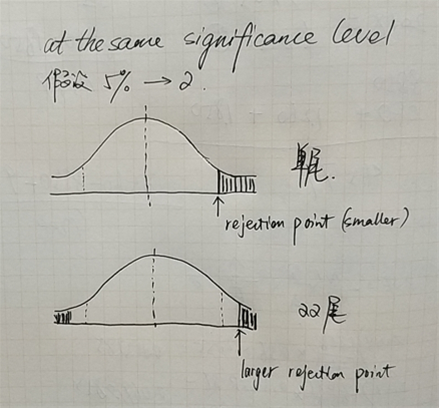 at the same significance level
假设 5% → α.
单尾.
rejection point (smaller)
双尾
larger rejection point